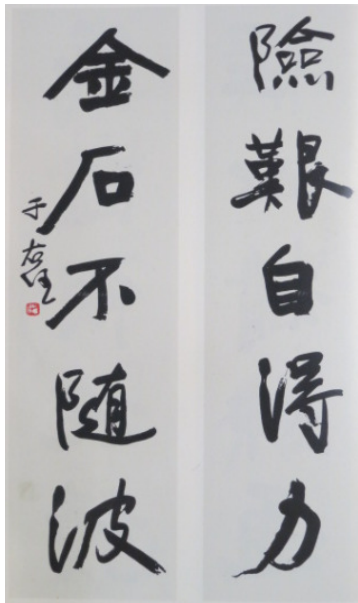 險艱自得力
金石不随波
于右任